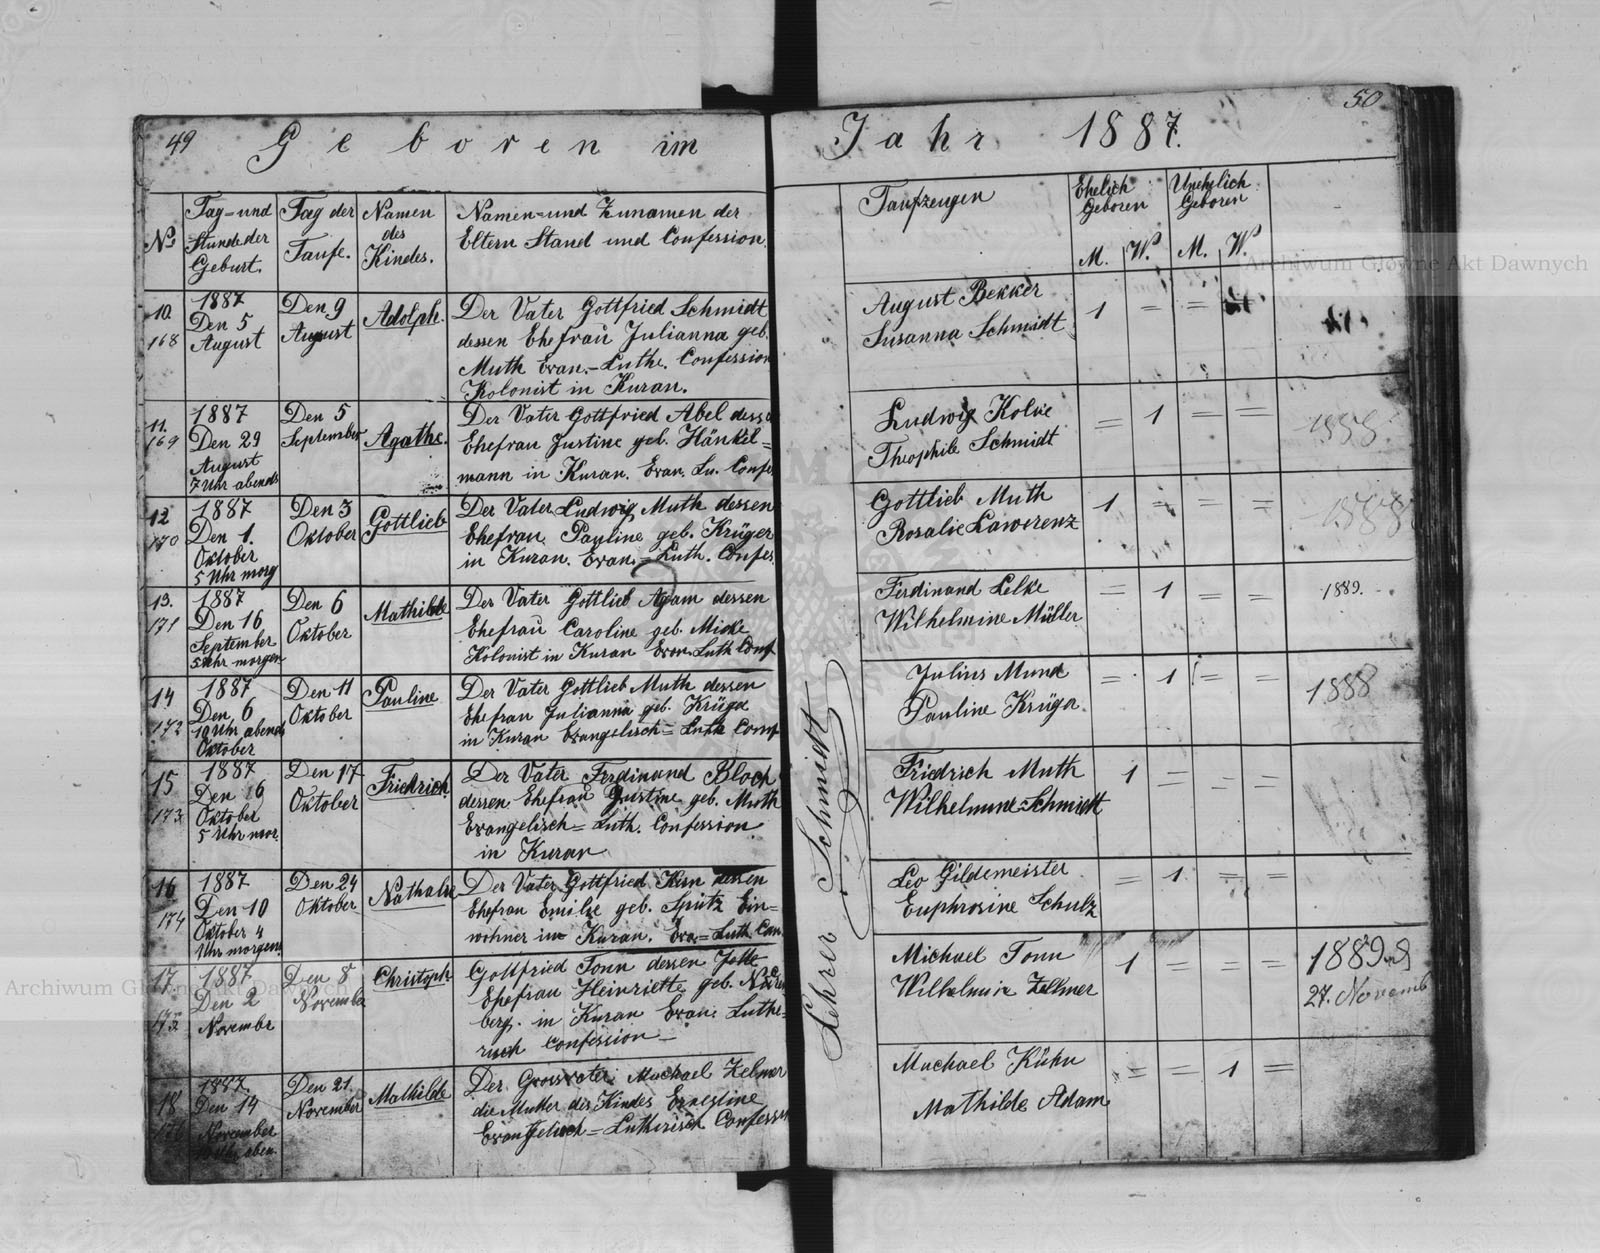 49
Geboren im
Jahr 1887.
50
No
Tag- und
Stunde der
Geburt.
Tag der
Taufe.
Namen
des
Kindes.
Namen- und Zunamen der
Eltern Stand und Confession
Taufzeugen
Ehelich
Geboren
Unehelich
Geboren
M. W. M. W.
10.
168
1887
Den 5
August
Den 9
August
Adolph.
Der Vater Gottfried Schmidt
dessen Ehefrau Julianna geb.
Muth Evan.-Luthe. Confession
Kolonist in Kuran.
August Bekker
Susanna Schmidt
1 = =
11.
169
1887
Den 29
August
7 Uhr abends
Den 5
September
Agathe.
Der Vater Gottfried Abel
Ehefrau Justine geb. Hänkel=
mann in Kuran. Evan. Lu. Confe
Ludwig Kolve
Theophile Schmidt
= 1 = =
1888
12
170
1887
Den 1.
Oktober
5 Uhr morg
Den 3
Oktober
Gottlieb
Der Vater Ludwig Muth dessen
Ehefrau Pauline geb. Krüger
in Kuran. Evan.=Luth. Confes.
Gottlieb Muth
Rosalie Lawerenz
1 = = =
1888
13.
171
1887
Den 16
September
5 Uhr morgen
Den 6
Oktober
Mathilde
Der Vater Gottlieb Agam dessen
Ehefrau Caroline geb. Micke
Kolonist in Kuran Evan. Luth Conf
Ferdinand Lelke
Wilhelmine Müller
= 1 = =
1889.
14
172
1887
Den 6
10 Uhr abends
Oktober
Den 11
Oktober
Pauline
Der Vater Gottlieb Muth dessen
Ehefrau Julianna geb. Krüga
in Kuran Evangelisch=Luth Conf
Julius Mund
Pauline Krüga
= 1 = =
1888
15
173
1887
Den 6
Oktober
5 Uhr mor.
Den 17
Oktober
Friedrich
Der Vater Ferdinand Bloch
dessen Ehefrau Justine geb. Muth
Evangelisch=Luth. Confession
in Kuran
Friedrich Muth
Wilhelmine Schmidt
1 = = =
16
174
1887
Den 10
Oktober 4
Uhr morgens
Den 24
Oktober
Nathalie
Der Vater Gottfried Kern dessen
Ehefrau Emilie geb. Spritz Ein=
wohner in Kuran. Eva=Luth. Con
Leo Gildemeister
Euphrosine Schulz
= 1 = =
17
175
1887
Den 2
November
Den 8
November
Christoph
Gottfried Tonn dessen
Ehefrau Heinriette geb.
berg. in Kuran Evan. Luthe=
risch Confession
Michael Tonn
Wilhelmine Zellmer
1 = = =
1889
27. Novemb
18
176
1887
Den 14
November
Uhr aben
Den 21.
November
Mathilde
Der Grossvater Machael Zelmer
die Mutter des Kindes Ernestine
Evangelisch=Lutherisch Confess
Machael Kühn
Mathilde Adam
= = 1 =
Lehrer Schmidt
Archiwum Główne Akt Dawnych
Archiwum Główne Akt Dawnych